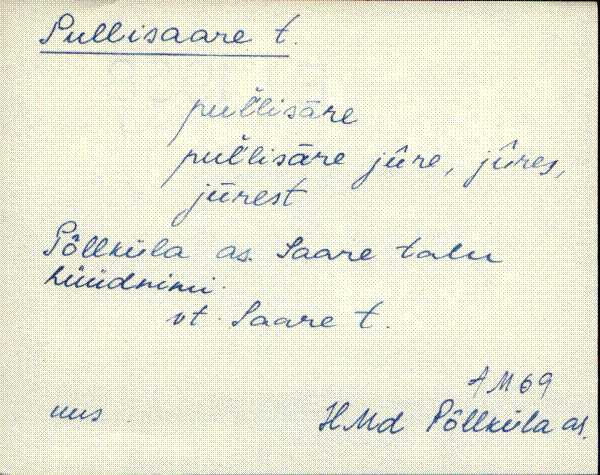 Pullisaare t.
pul̆lisāre
pul̆lisāre jūre, jūres,
jūrest
Põllküla as. Saare talu
hüüdnimi.
vt. Saare t.
AM69
uus HMd Põllküla as.